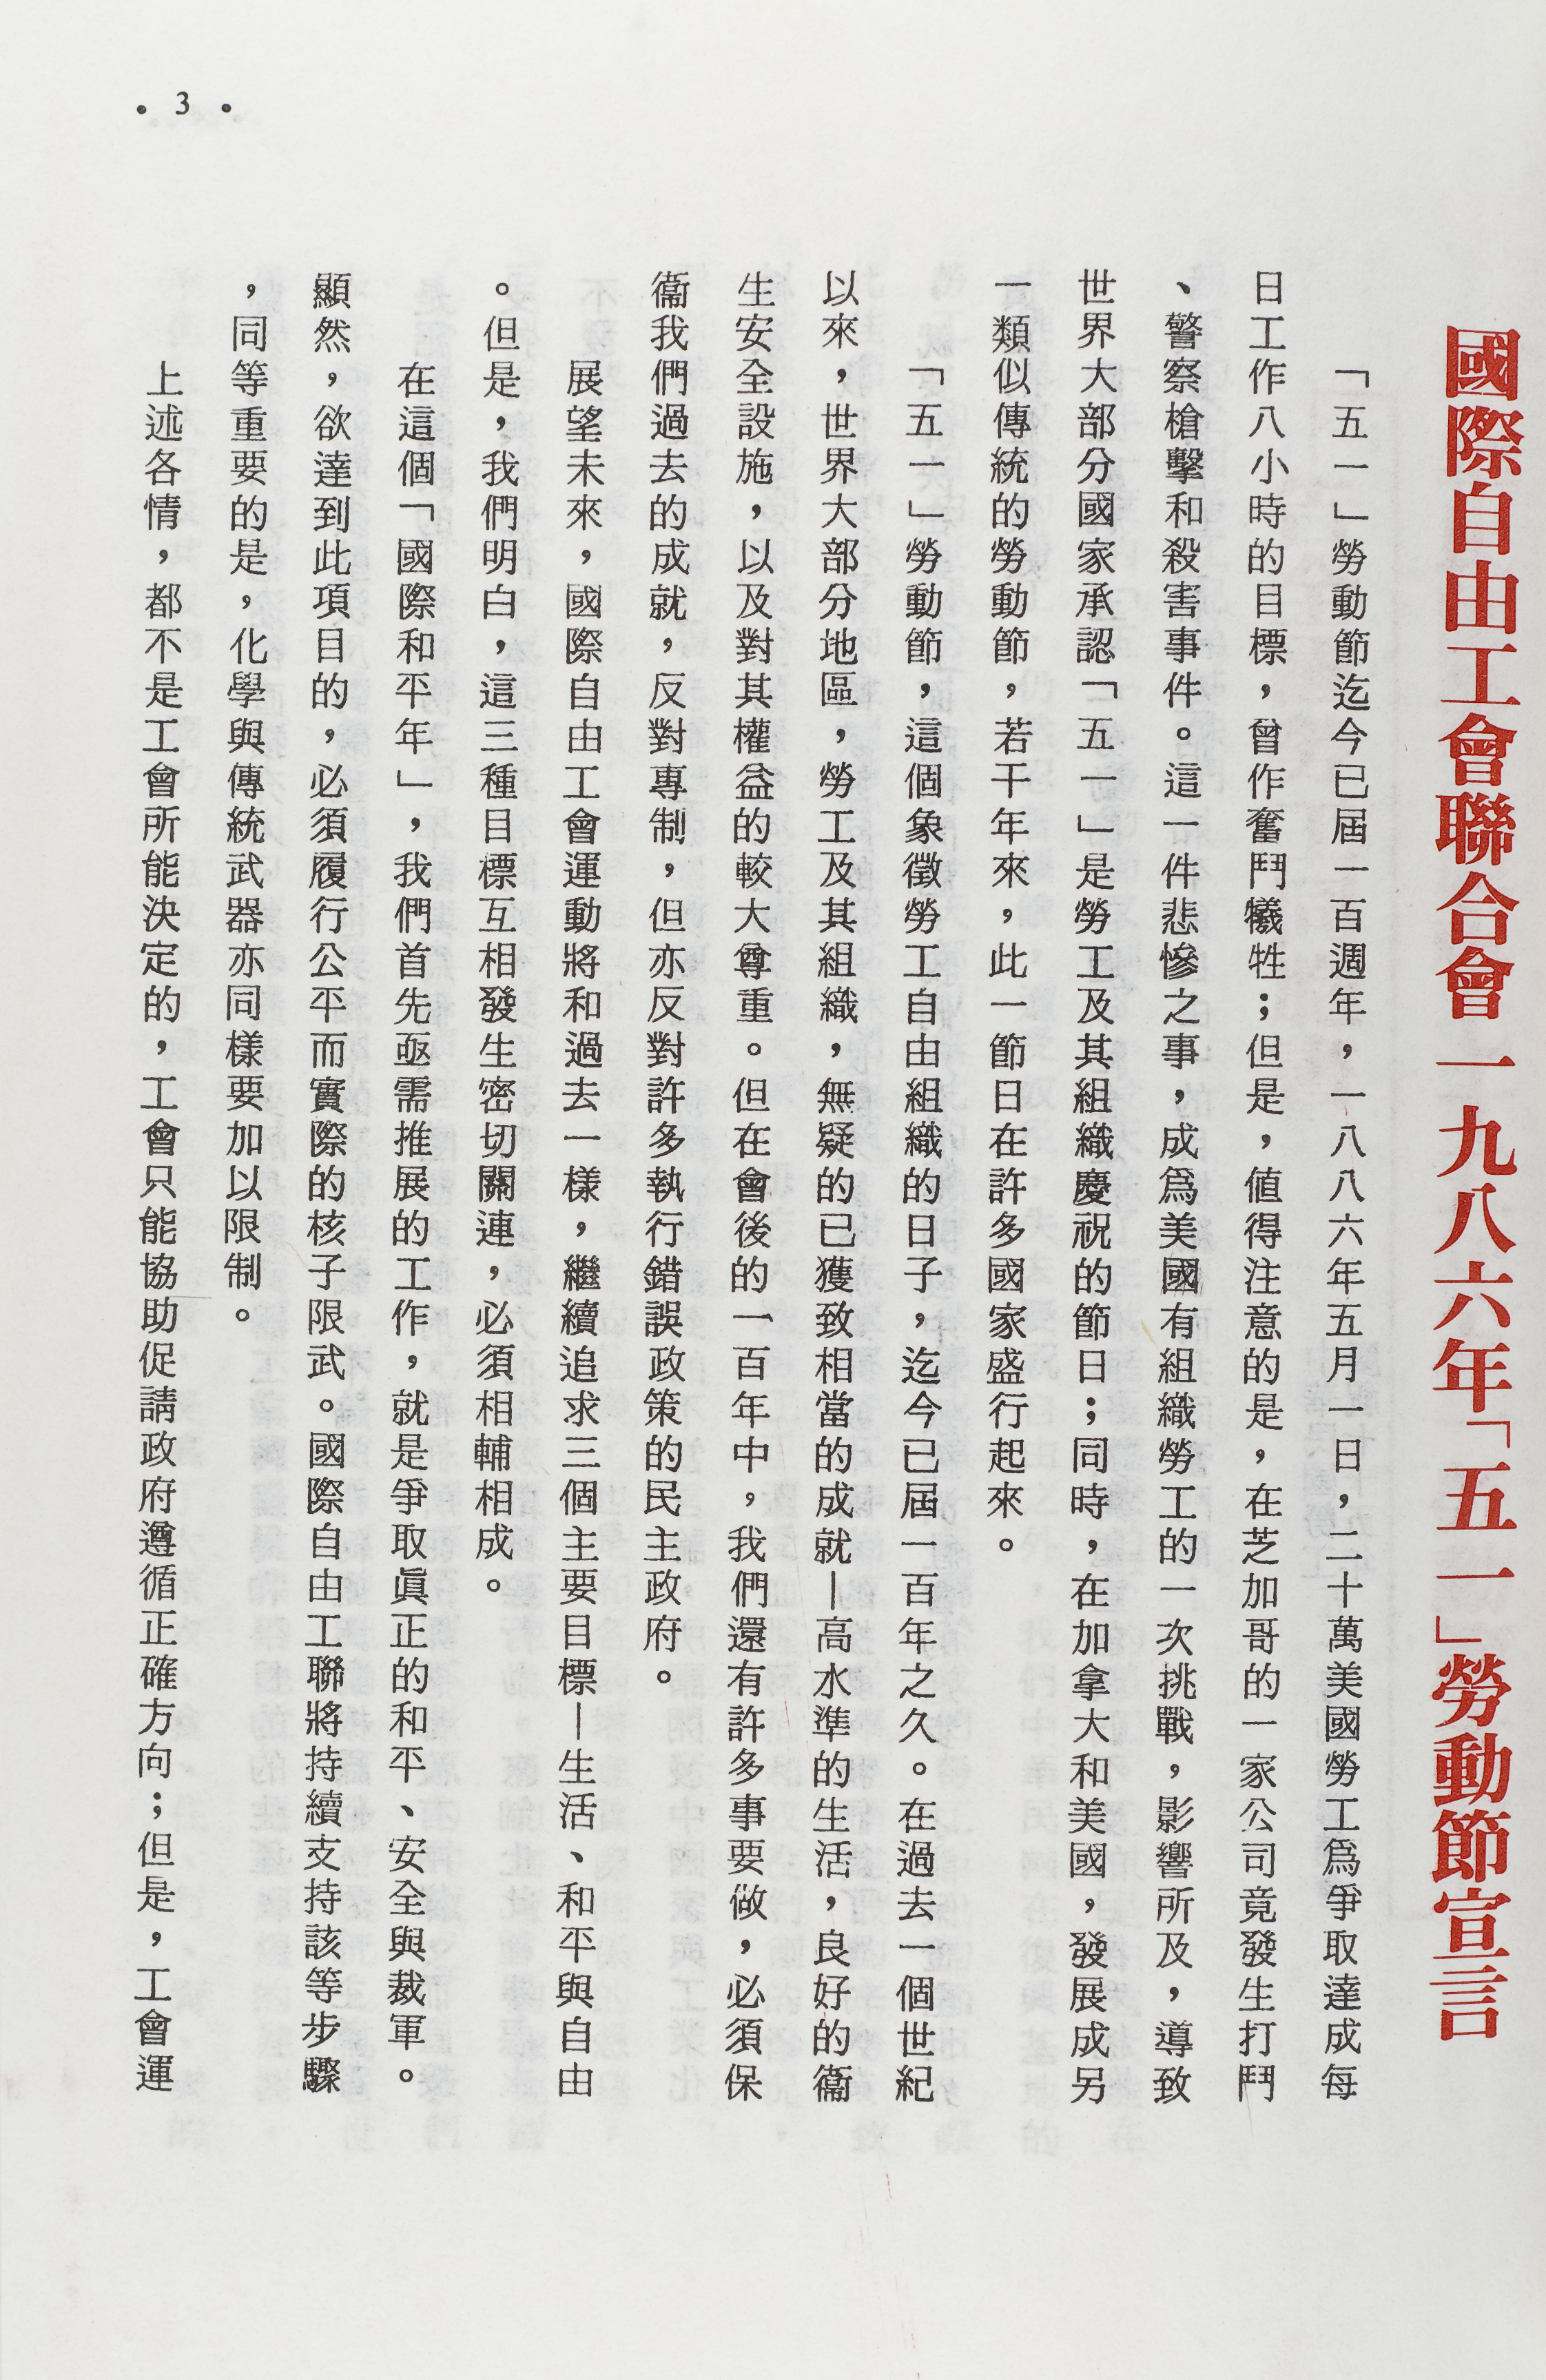 國際自由工會聯合會一九八六年「五一」勞動節宣言
「五一」勞動節迄今已屆一百週年，一八八六年五月一日，二十萬美國勞工爲爭取達成每
日工作八小時的目標，曾作奮鬥犧牲；但是，値得注意的是，在芝加哥的一家公司竟發生打鬥
、警察槍擊和殺害事件。這一件悲慘之事，成爲美國有組織勞工的一次挑戰，影響所及，導致
世界大部分國家承認「五一」是勞工及其組織慶祝的節日；同時，在加拿大和美國，發展成另
一類似傳統的勞動節，若干年來，此一節日在許多國家盛行起來。
「五一」勞動節，這個象徵勞工自由組織的日子，迄今已屆一百年之久。在過去一個世紀
以來，世界大部分地區，勞工及其組織，無疑的已獲致相當的成就—高水準的生活，良好的衞
生安全設施，以及對其權益的較大尊重。但在會後的一百年中，我們還有許多事要做，必須保
衞我們過去的成就，反對專制，但亦反對許多執行錯誤政策的民主政府。
展望未來，國際自由工會運動將和過去一樣，繼續追求三個主要目標—生活、和平與自由
。但是，我們明白，這三種目標互相發生密切關連，必須相輔相成。
在這個「國際和平年」，我們首先亟需推展的工作，就是爭取眞正的和平、安全與裁軍。
顯然，欲達到此項目的，必須履行公平而實際的核子限武。國際自由工聯將持續支持該等步驟
，同等重要的是，化學與傳統武器亦同樣要加以限制。
上述各情，都不是工會所能決定的，工會只能協助促請政府遵循正確方向；但是，工會運
• 3 •